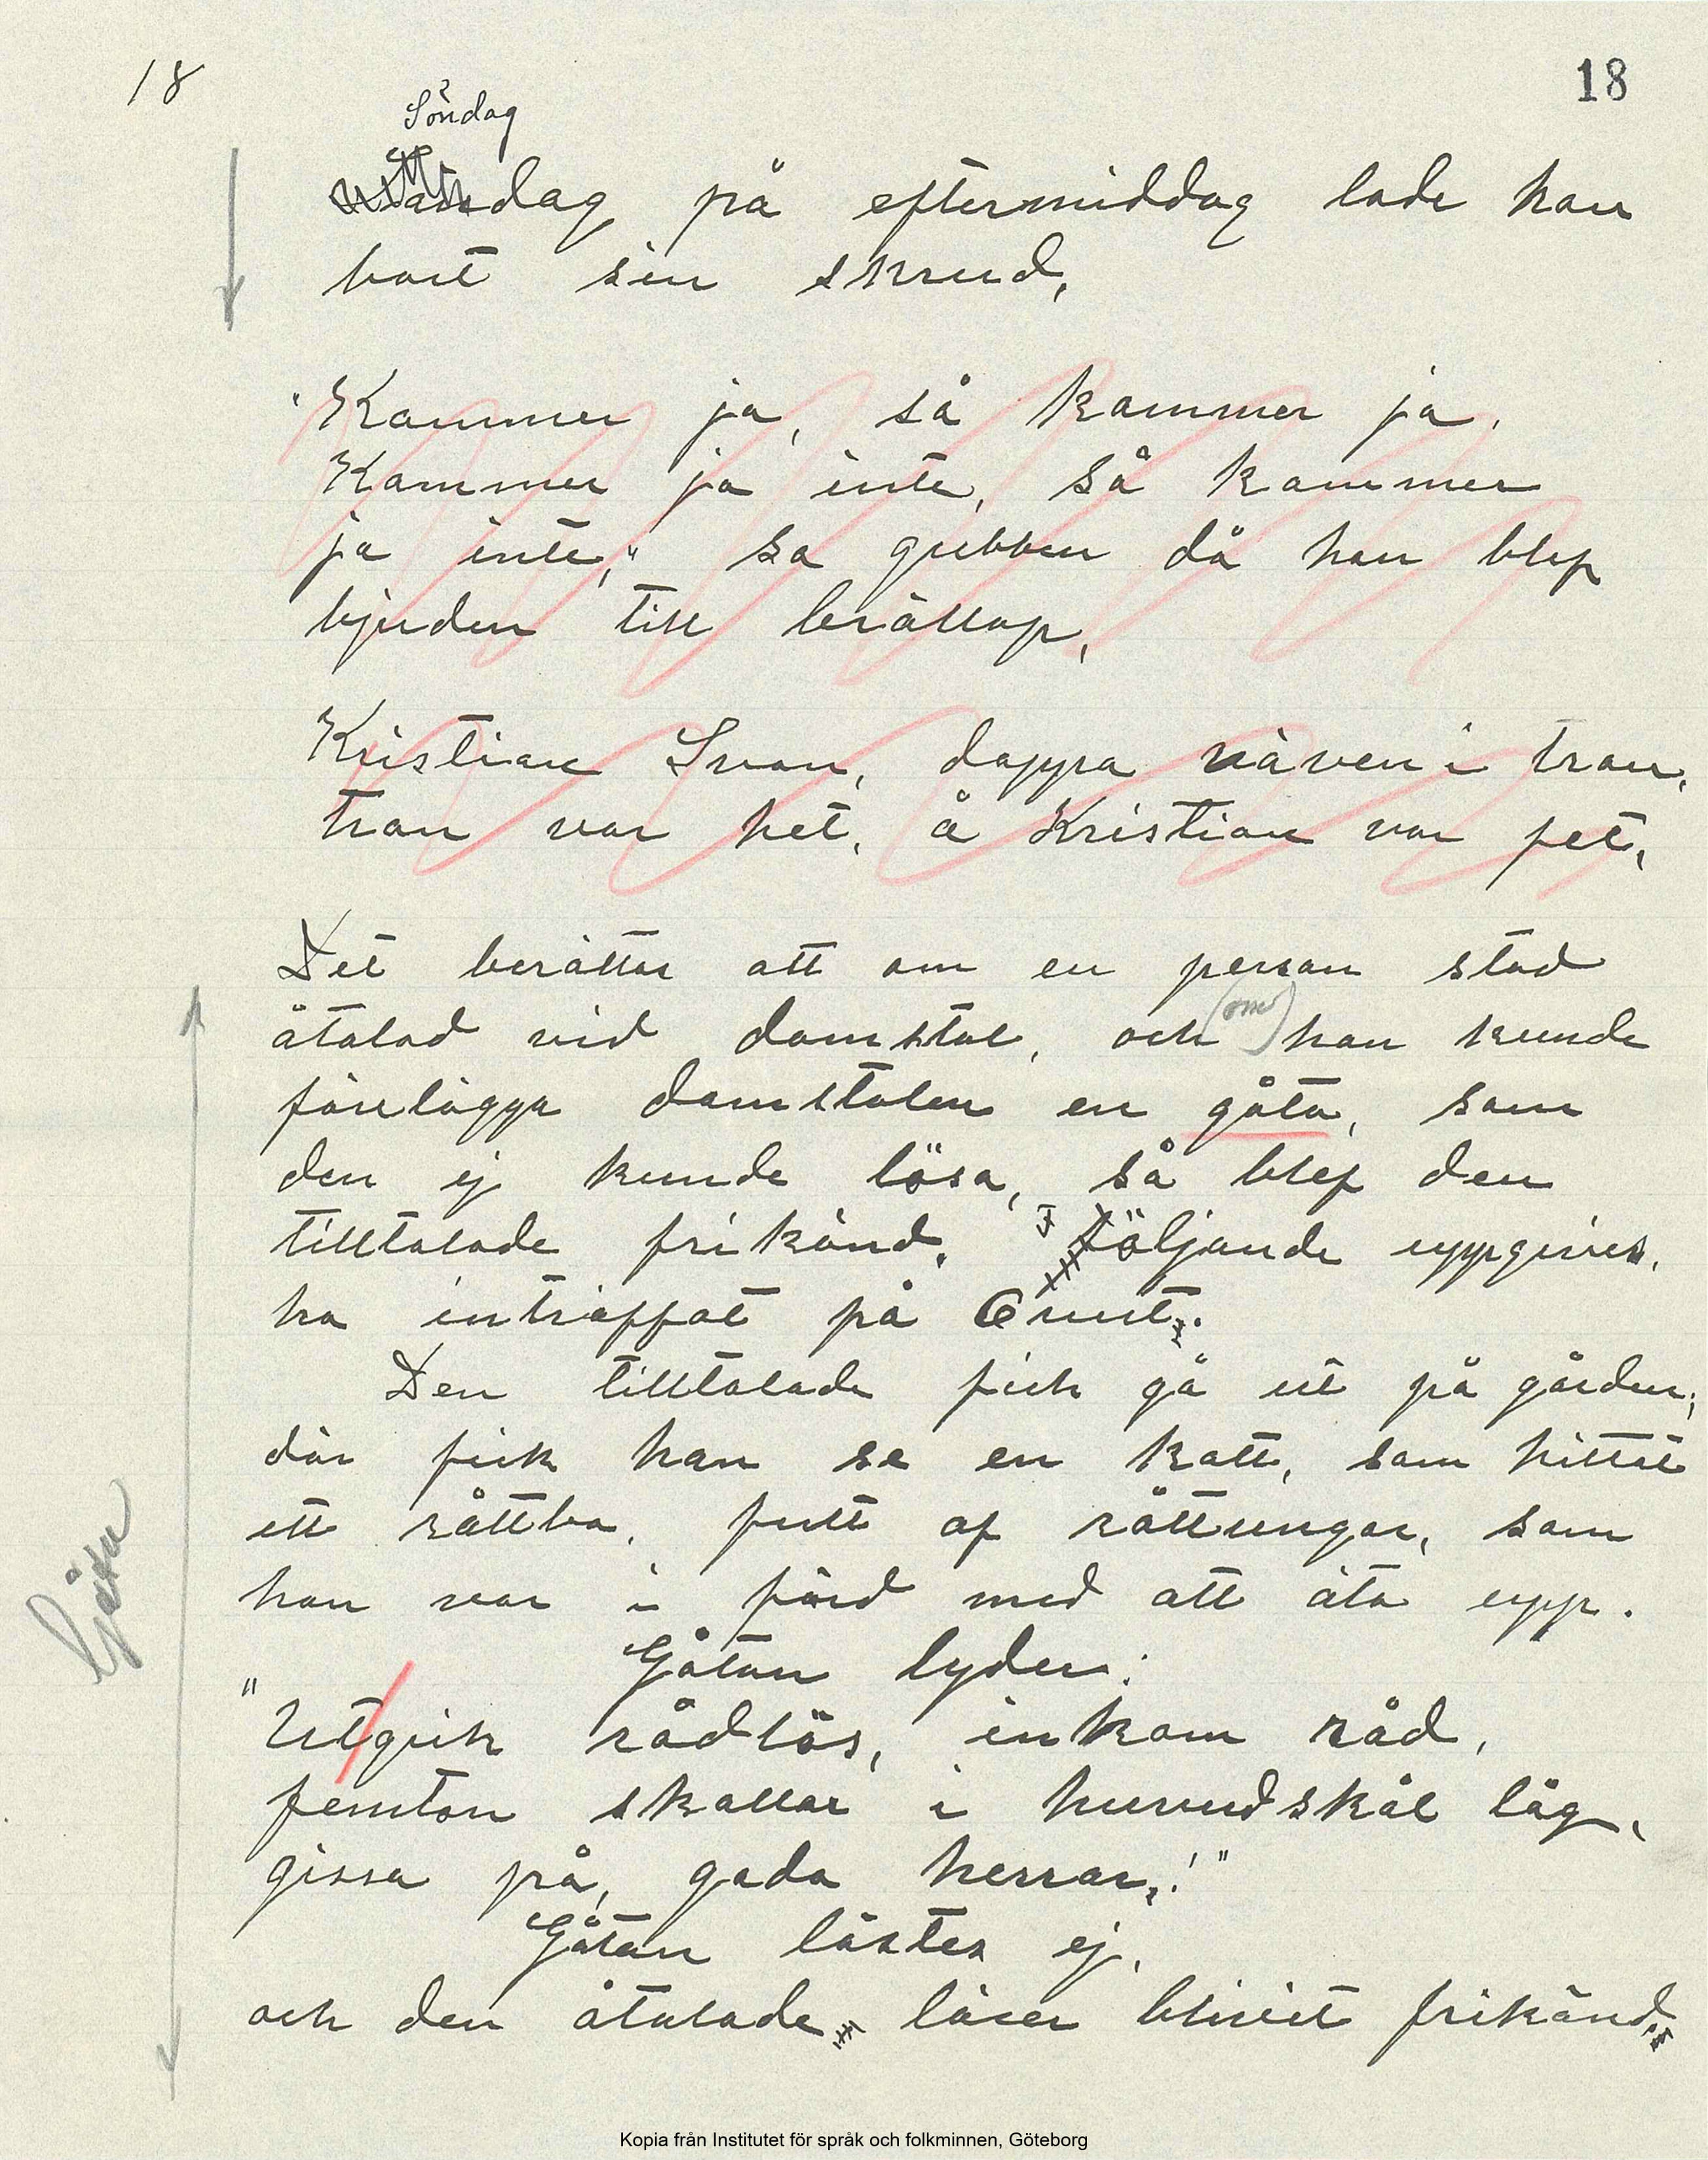 18
18
Söndag
dag på eftermiddag lade han
bort sin skrud,
"Kommer ja, så kommer ja,
Kommer ja inte, så kommer
ja inte," sa gubben då han blef
bjuden till bröllop,
Kristian Svan, doppa näven i tran,
tran var het, å Kristian var fet,
Det berättas att om en person stod
åtalad vid domstol, och (om) han kunde
förelägga domstolen en gåta, som
den ej kunde lösa, så blef den
tilltalade frikänd. Följande uppgives
ha inträffat på Orust.
Den tilltalade fick gå ut på gården,
där fick han se en katt, som hittat
ett råttbo, fullt af råttungar, som
han var i färd med att äta upp.
Gåtan lyder:
"Utgick rådlös, inkom råd,
femton skallar i huvudskål låg,
gissa på, goda herrar!"
Gåtan löstes ej,
och den åtalade läser blivit frikänd.
Gåta
Kopia från Institutet för språk och folkminnen, Göteborg